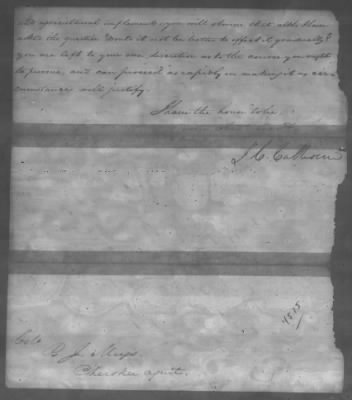 and agricultural implements you will observe that altho I have
asked the question "would it not be better to effect it gradually"?
you are left to your own discretion as to the course you ought
to pursue, and can proceed as rapidly in making it as cir-
cumstances will justify.
I have the honor to be
J. C. Calhoun
4515
Colo
R. J. Meigs
Cherokee agent.